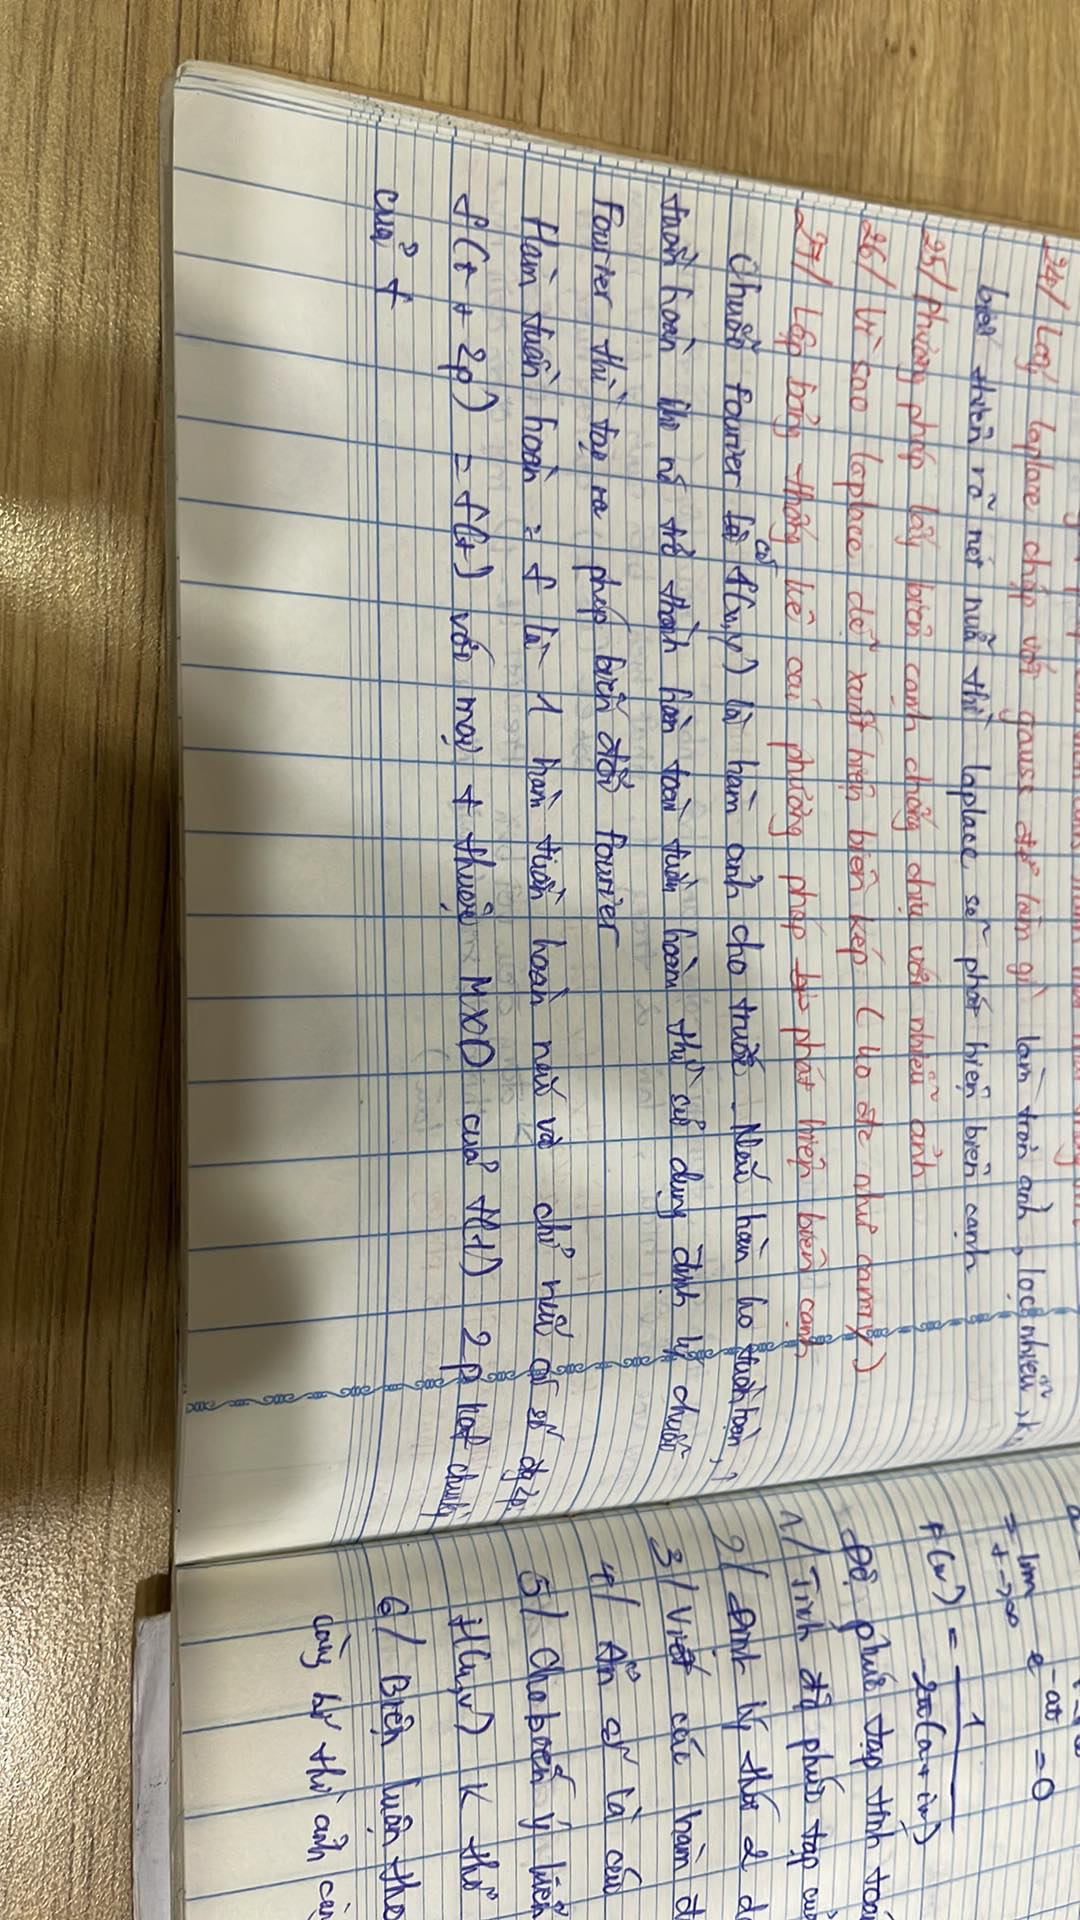 24/ Lấy laplace chập với gauss để làm gì làm trơn ảnh, lọc nhiễu
biến thiên rõ nét nữa thì laplace sẽ phát hiện biên cạnh
25/ phương pháp lấy biên cạnh chống chịu với nhiễu ảnh
26/ Vì sao laplace dễ xuất hiện biên kép (ko đc như canny)
27/ Lập bảng thống kê các phương pháp phát hiện biên cạnh
Chuỗi fourier có f(u,v) là hàm ảnh cho trước. Nếu hàm ko tuần hoàn,
tuần hoàn thì nó trở thành hàm tuần hoàn thì sử dụng định lý chuỗi
Fourier thì tạo ra phép biến đổi fourier
Hàm tuần hoàn = f là 1 hàm tuần hoàn nếu và chỉ nếu có số
f(t + 2p) = f(t) với mọi t thuộc MXĐ của f(t) 2p
của f
= lim e^-at = 0
t->∞
F(w) = 1
-2π(a+iw)
Độ phức tạp tính toán
1/ Tính độ phức tạp của
2/ Định lý thứ 2
3/ Viết các hàm
4/ Ẩn số là các
5/ Cho biết ý kiến
H(u,v) K thì
6/ Biện luận tho
càng thì ảnh càng